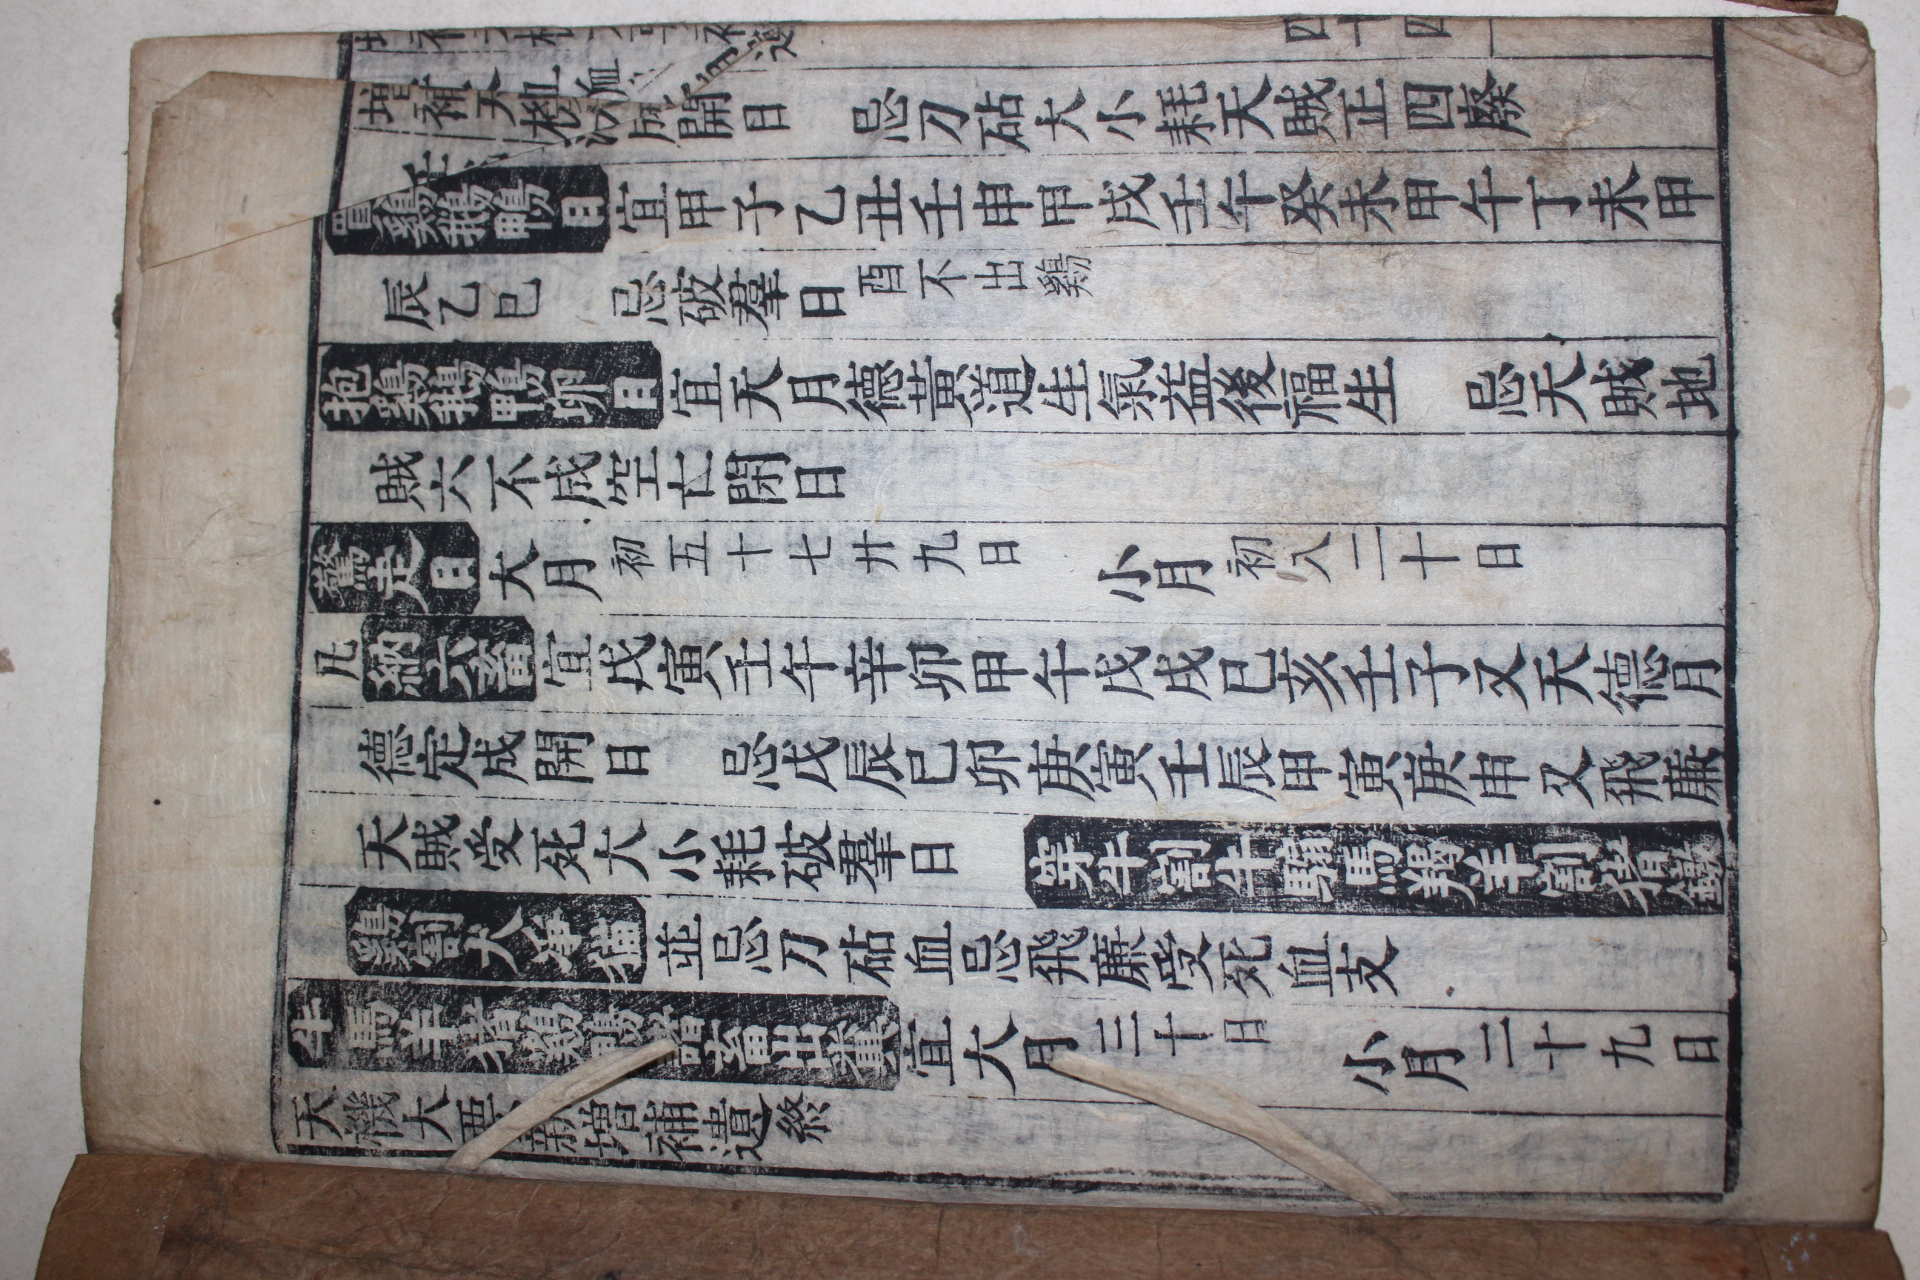 四十四
成開日 忌刀砧大小耗天賊正四廢
買鷄鵝鴨日 宜甲子乙丑壬申甲戌壬午癸未甲午丁未甲
辰乙巳 忌破羣日 酉不出鷄
抱鷄鵝鴨卵日 宜天月德黃道生氣益後福生 忌天賊地
賊六不成空亡閉日
驚走日 大月初五十七廿九日 小月初八二十日
凡納六畜 宜戊寅壬午辛卯甲午戊戌己亥壬子又天德月
德定成開日 忌戊辰己卯庚寅壬辰甲寅庚申又飛廉
天賊受死大小耗破羣日 穿牛割牛騸馬羯羊割猪鐓
鷄割犬淨猫 並忌刀砧血忌飛廉受死血支
牛馬羊猪鷄鴨諸畜出糞 宜大月三十日 小月二十九日
天機大要新增補遺終